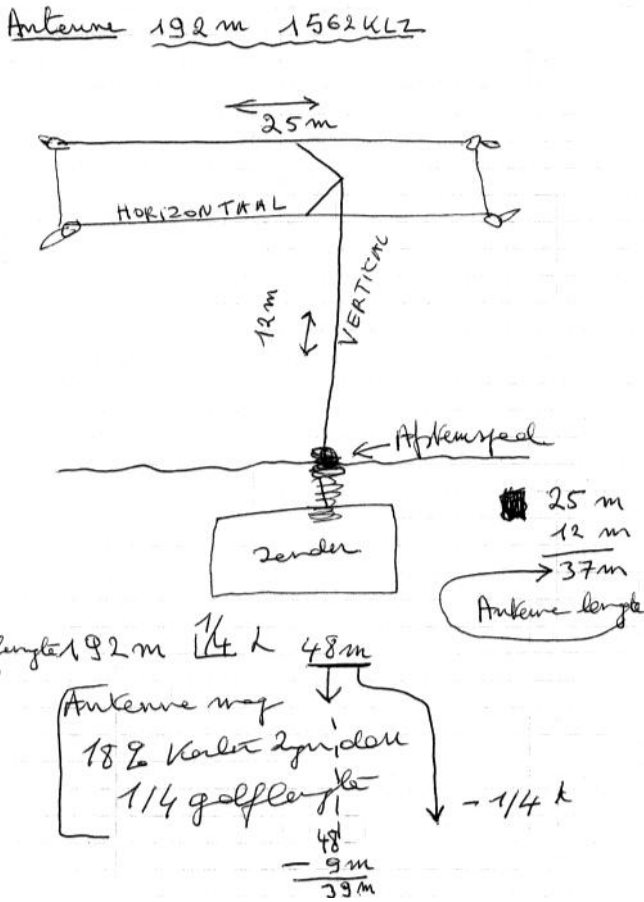 Antenne 192 m 1562KLZ
25 m
HORIZONTAAL
12 m
VERTIKAAL
Afstemspoel
Zender
25 m
12 m
37 m
Antenne lengte
lengte 192 m 1/4 λ 48 m
Antenne mag
18% korter zijn dan
1/4 golflengte
- 1/4 λ
48
- 9 m
39 m